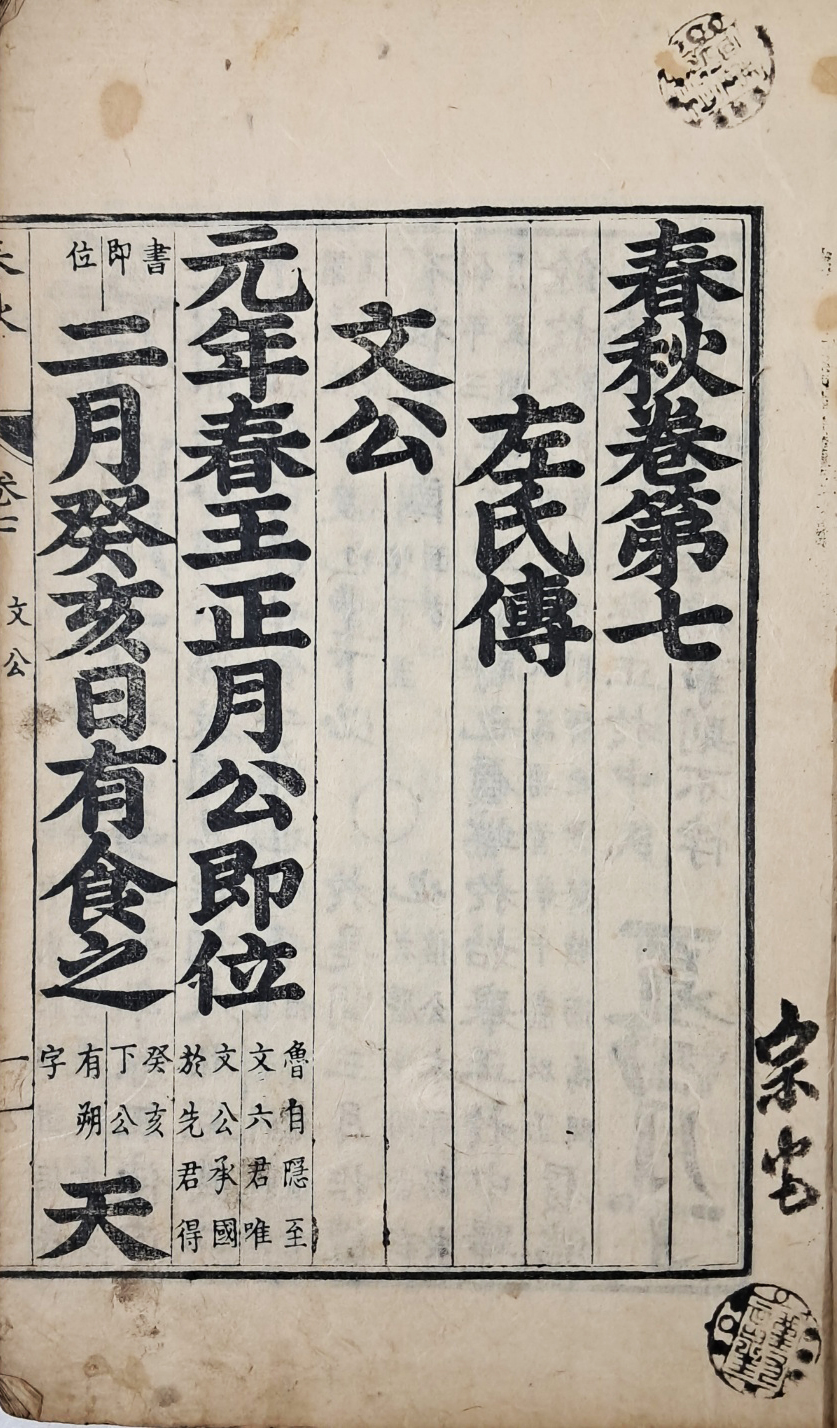 春秋卷第七
左氏傳
文公
元年春王正月公即位
魯自隱至
文六君唯
文公承國
於先君得
書
即
位
二月癸亥日有食之
癸亥
下公
有朔
字
天
卷七
文公
一